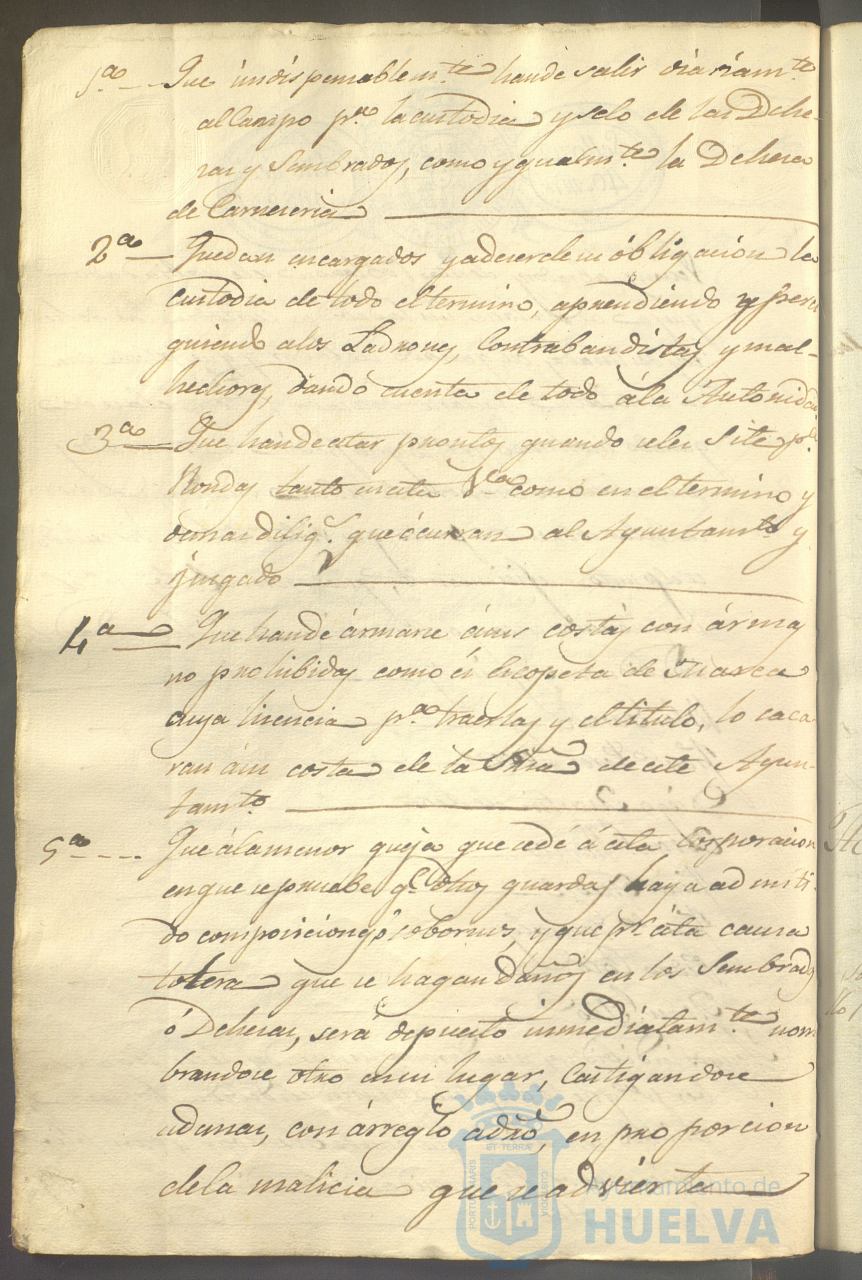 1.ª - Que indispensablem.te hande salir diariam.te
al Campo p.a la custodia y selo de las Dehe-
sas y Sembrados, como ygualm.te la Dehesa
de Carneceria
2.ª Quedan encargados y a deser desu óbligacion la
Custodia de todo el termino, aprendiendo y perci
guiendo a los Ladrones, Contrabandistas y mal-
hechores, dando cuenta de todo á la Autoridad
3.ª Que hande estar prontos quando seles Site p.a
Rondas tanto en esta V.a como en el termino y
demas dilig.s que ócurran al Ayuntam.to y
juzgado
4.ª Que hande ármarse ásus costas con ármas
no prohibidas como és Escopeta de Marca
cuya licencia p.a traerlas y el titulo, lo saca-
ran ásu costa de la Sria de este Ayun-
tam.to
5.ª - Que álamenor queja que sedé á esta Corporacion
en que se pruebe q.e dhos guardas haya admiti-
do composiciones ó sobornos, y que p.r ésta causa
tolera que se hagan daños en los Sembrados
ó Dehesas, será depuesto inmediatam.te nom
brandose otro en su lugar, Castigandose
ademas, con árreglo a dro, en proporcion
de la malicia que se advierta
PORTUS MARIS
ET TERRAE
CUSTODIA
Ayuntamiento de
HUELVA